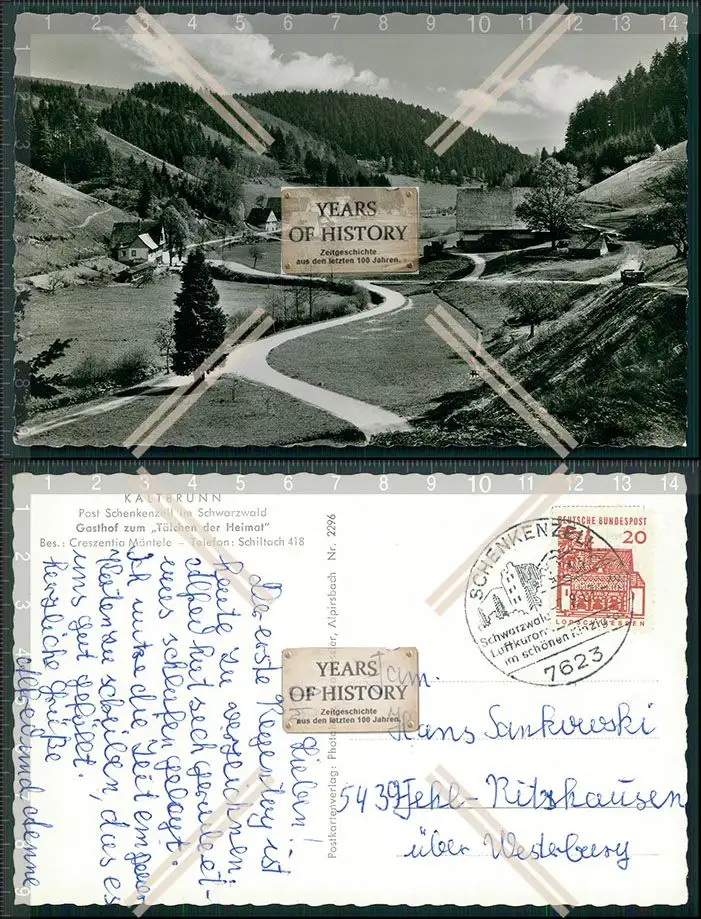 YEARS
OF HISTORY
Zeitgeschichte
aus den letzten 100 Jahren.
KALTBRUNN
Post Schenkenzell im Schwarzwald
Gasthof zum „Tälchen der Heimat"
Bes.: Creszentia Mäntele – Telefon: Schiltach 418
Lieben!
Der erste Regentag ist
heute zu verzeichnen.
Alfred hat sich
schlafen gelegt.
Ich nutze die Zeit ein paar
Karten zu schreiben, das es
uns gut gefällt.
Herzliche Grüße
Alfred und Aenne
Postkartenverlag: Photo
Alpirsbach Nr. 2296
YEARS
OF HISTORY
Zeitgeschichte
aus den letzten 100 Jahren.
SCHENKENZELL
Schwarzwald
Luftkurort
im schönen Kinzig
7623
DEUTSCHE BUNDESPOST
20
LORSCH/HESSEN
Fam.
Hans Sankowski
5439 Hehl-Ritzhausen
über Westerburg
1 2 3 4 5 6 7 8 9 10 11 12 13 14
1 2 3 4 5 6 7 8 9 10 11 12 13 14